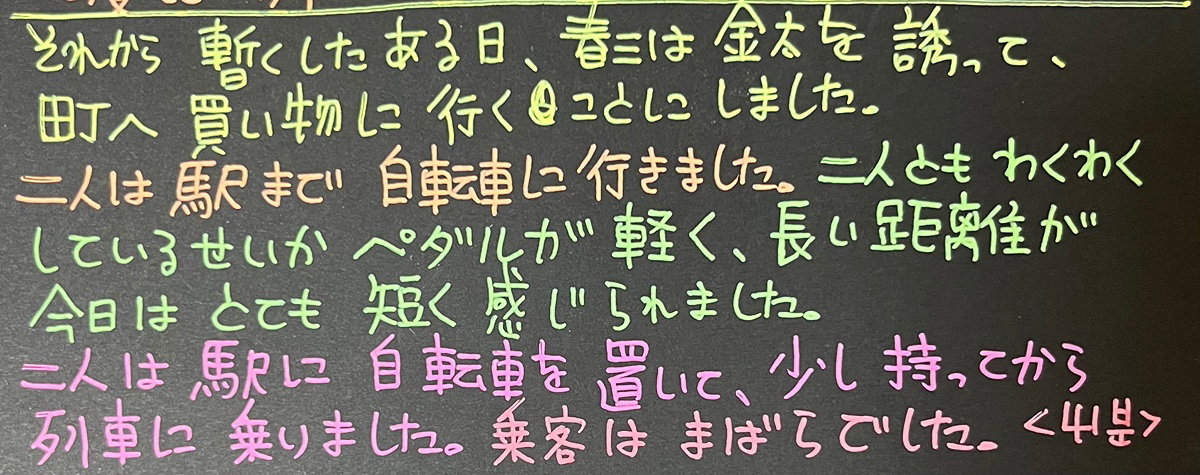 それから 暫くした ある日、春三は 金太を 誘って、
町へ 買い物に 行く ことに しました。
二人は 駅まで 自転車に 行きました。二人とも わくわく
しているせいか ペダルが 軽く、長い 距離が
今日は とても 短く 感じられました。
二人は 駅に 自転車を 置いて、少し 持ってから
列車に 乗りました。乗客は まばらでした。<41분>